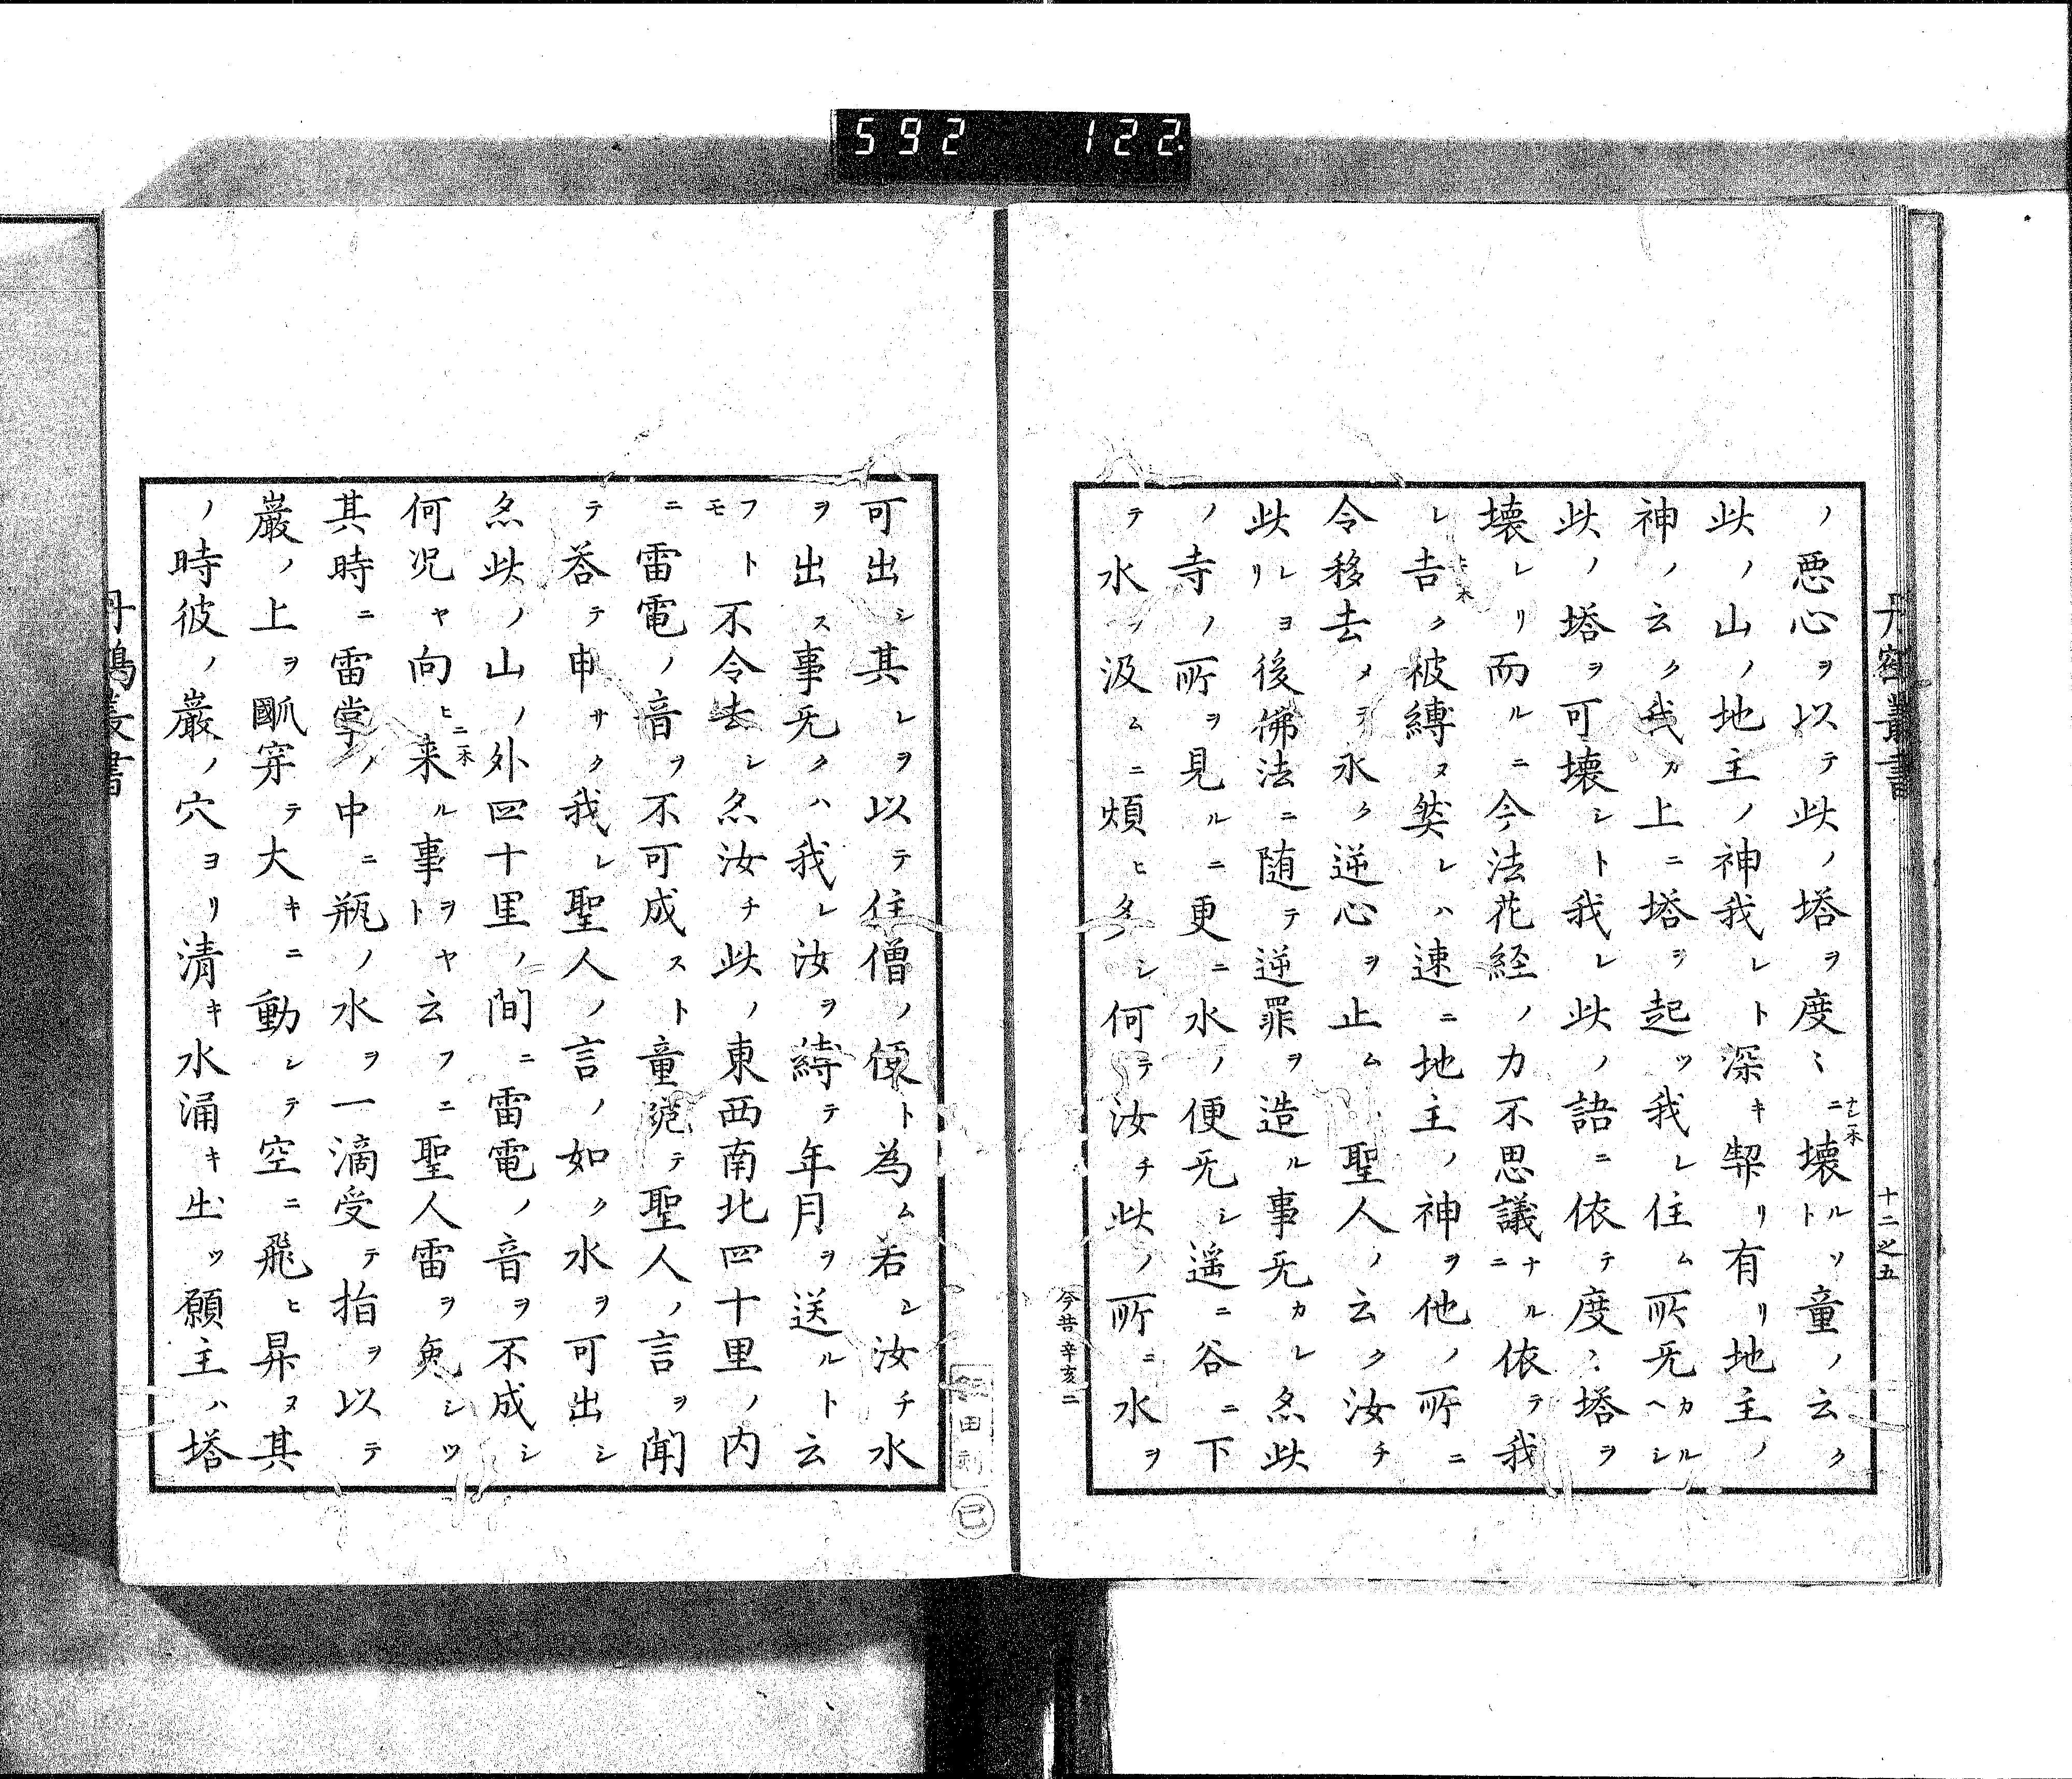 592 122
十二之五
ノ悪心ヲ以テ此ノ塔ヲ度〻ニ壊ルトソ童ノ云ク
此ノ山ノ地主ノ神我レト深キ契リ有リ地主ノ
神ノ云ク我カ上ニ塔ヲ起ツ我レ住ム所无カルヘシ
此ノ塔ヲ可壊シト我レ此ノ語ニ依テ度〻塔ヲ
壊レリ而ルニ今法花経ノ力不思議ナルニ依テ我
レ吉ク被縛ヌ然レハ速ニ地主ノ神ヲ他ノ所ニ
令移去メテ永ク逆心ヲ止ム聖人ノ云ク汝チ
此レヨリ後佛法ニ随テ逆罪ヲ造ル事无カレ亦此
ノ寺ノ所ヲ見ルニ更ニ水ノ便无シ遥ニ谷ニ下
テ水ヲ汲ムニ煩ヒ多シ何テ汝チ此ノ所ニ水ヲ
今昔辛亥二
可出シ其レヲ以テ住僧ノ便ト為ム若シ汝チ水
ヲ出ス事无クハ我レ汝ヲ縛テ年月ヲ送ルト云
フトモ不令去シ亦汝チ此ノ東西南北四十里ノ内
ニ雷電ノ音ヲ不可成スト童跪テ聖人ノ言ヲ聞
テ答テ申サク我レ聖人ノ言ノ如ク水ヲ可出シ
亦此ノ山ノ外四十里ノ間ニ雷電ノ音ヲ不成シ
何况ヤ向ヒ来ル事ヲヤト云フニ聖人雷ヲ免シツ
其時ニ雷掌ノ中ニ瓶ノ水ヲ一滴受テ指ヲ以テ
巌ノ上ヲ穿テ大キニ動シテ空ニ飛ヒ昇ヌ其
ノ時彼ノ巌ノ穴ヨリ清キ水涌キ出ツ願主ハ塔